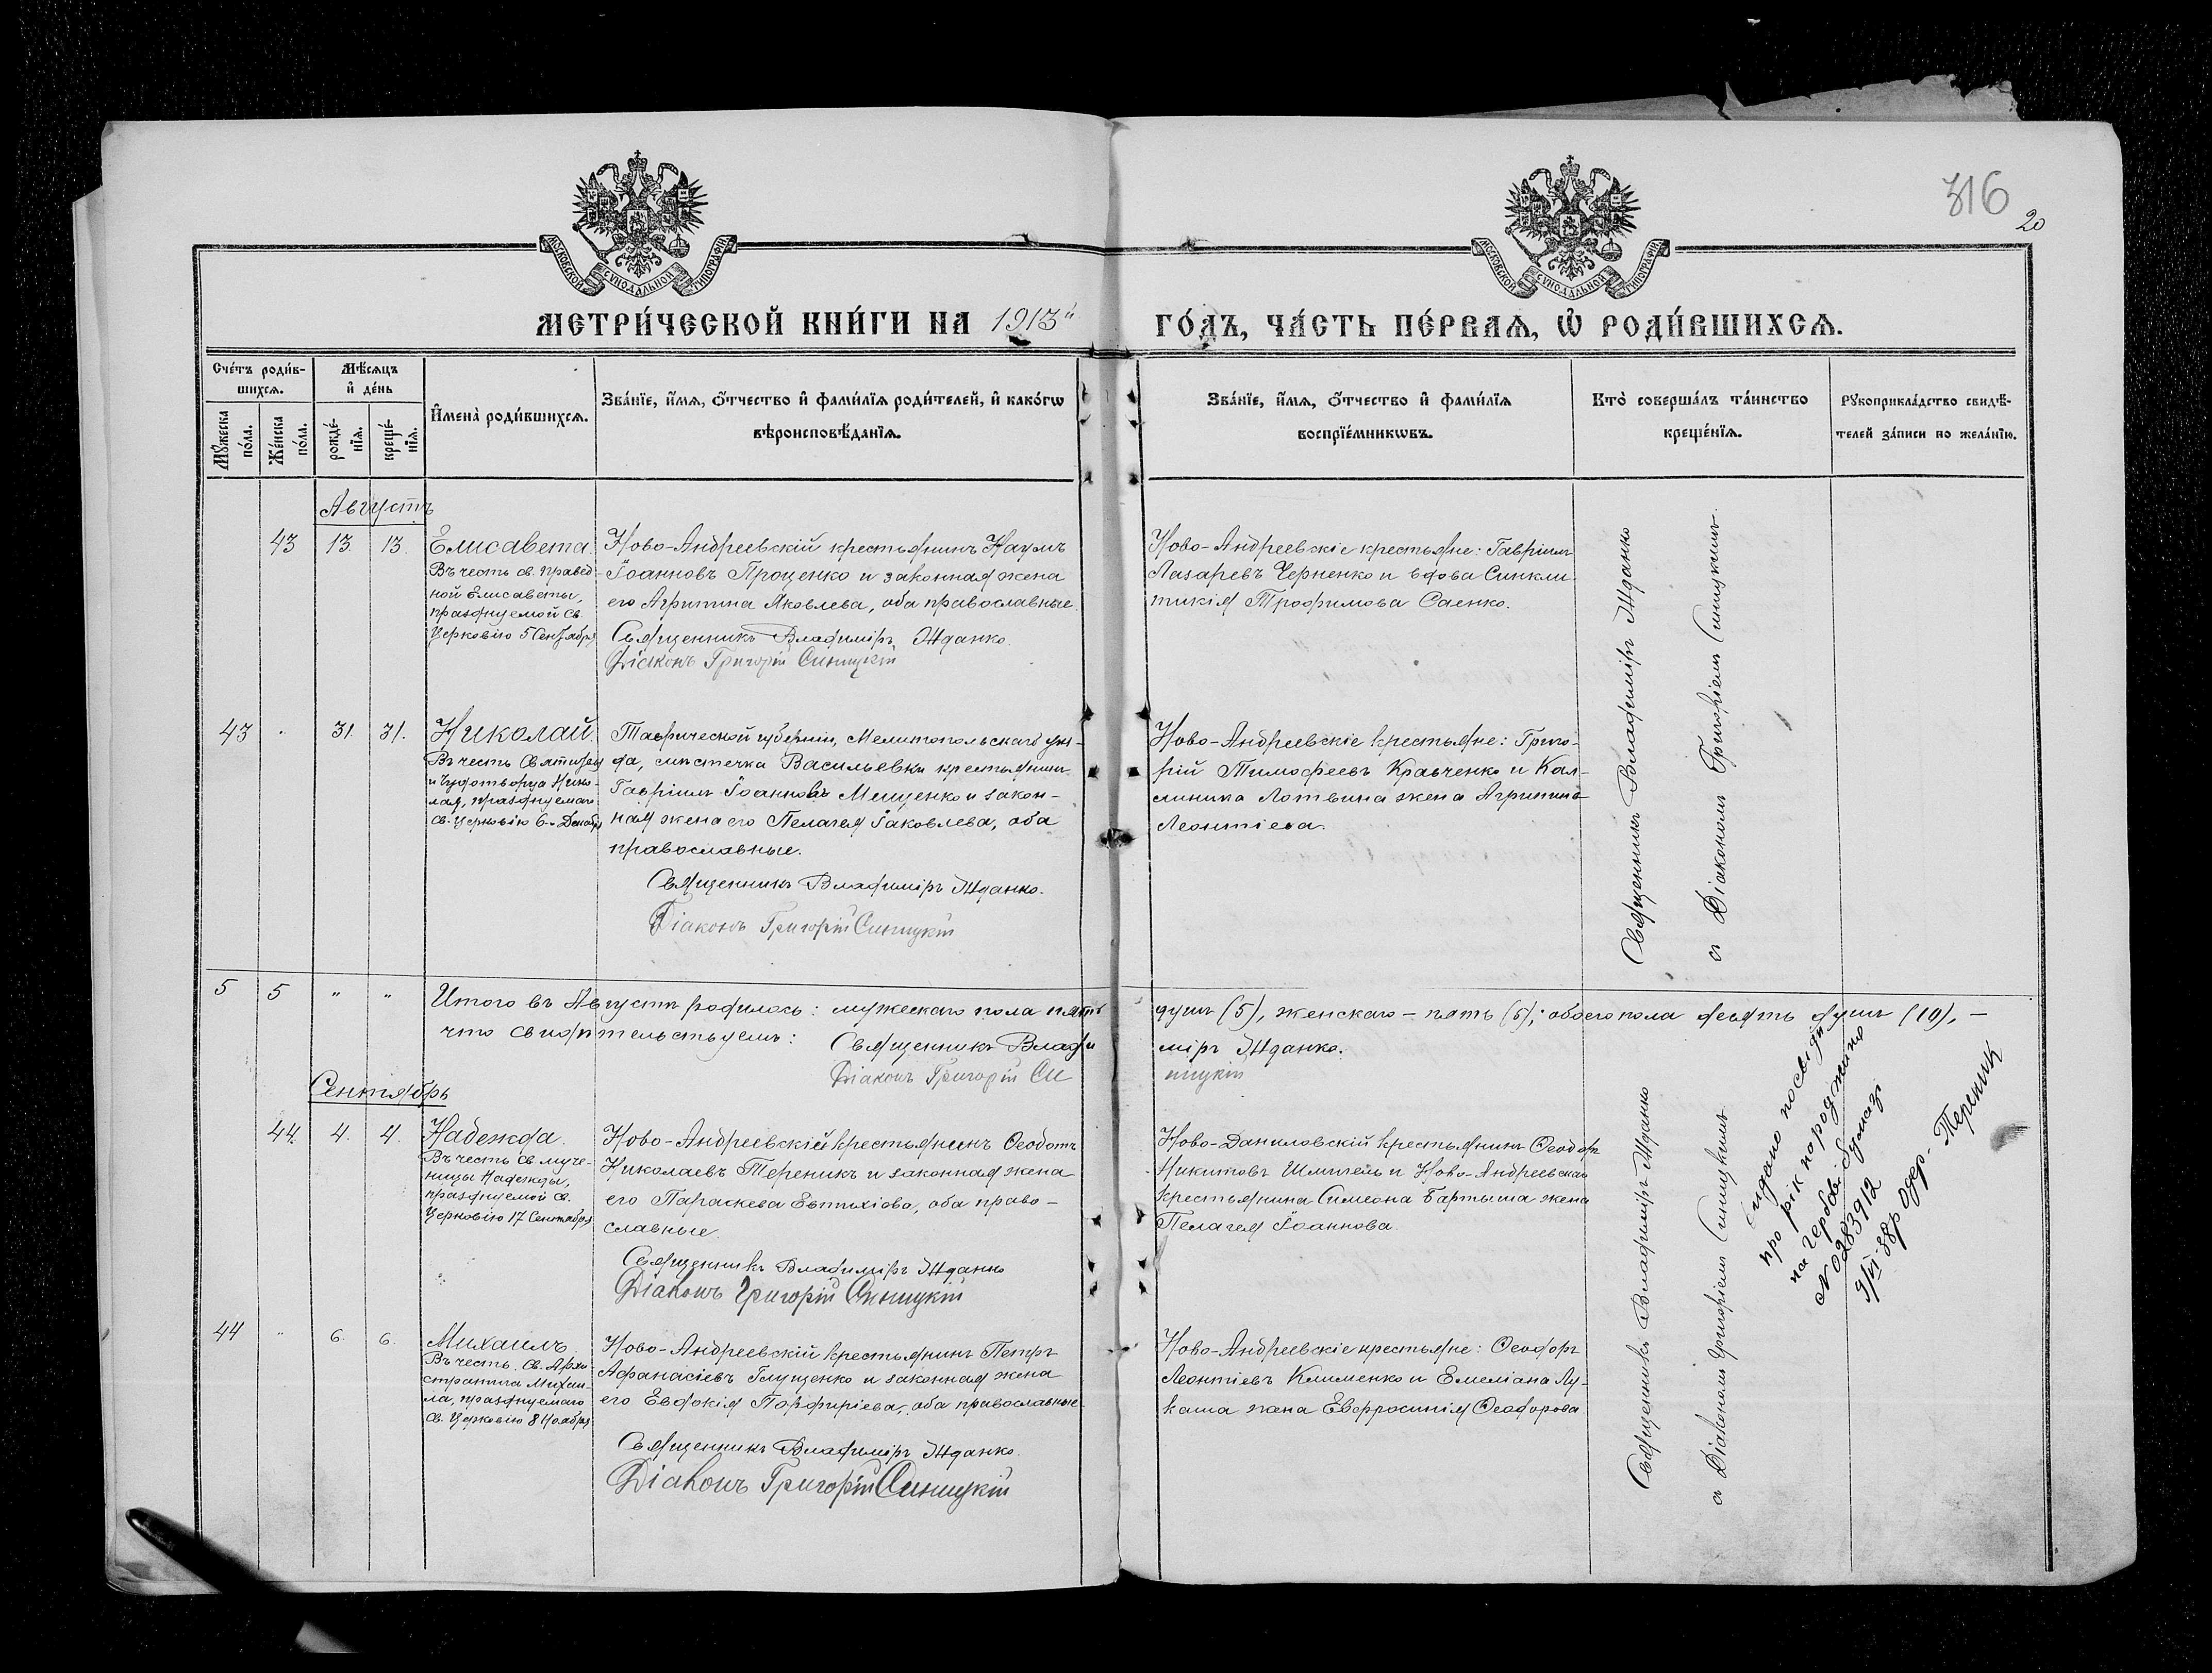 316
20
МОСКОВСКОЙ СѴНОДАЛЬНОЙ ТИПОГРАФІИ
МОСКОВСКОЙ СѴНОДАЛЬНОЙ ТИПОГРАФІИ
МЕТРИ́ЧЕСКОЙ КНИ́ГИ НА 1913й ГО́ДЪ, ЧА́СТЬ ПЕ́РВАѦ, Ѡ҆ РОДИ́ВШИХСѦ.
Сче́тъ роди́в-
шихсѧ.
Мѣ́сѧцъ
и҆ де́нь
Мꙋ́жеска
по́ла.
Же́нска
по́ла.
рожде́-
нїѧ.
креще́-
нїѧ.
И҆мена̀ роди́вшихсѧ.
Зва́нїе, и҆́мѧ, ѻ҆́тчество и҆ фами́лїѧ роди́телей, и҆ како́гѡ
вѣроисповѣ́данїѧ.
Зва́нїе, и҆́мѧ, ѻ҆́тчество и҆ фами́лїѧ
воспрїе́мникѡвъ.
Кто̀ соверша́лъ та́инство
креще́нїѧ.
Рꙋкоприкла́дство свидѣ́-
телей за́писи по жела́нїю.
Августъ
43 13. 13.
Елисавета.
Въ честь св. правед-
ной Елисаветы,
празднуемой Св.
Церковію 5 Сентября
Ново-Андреевскій крестьянинъ Наумъ
Іоанновъ Проценко и законная жена
его Агрипина Яковлева, оба православные.
Священникъ Владиміръ Жданко.
Діаконъ Григорій Синицкій
Ново-Андреевскіе крестьяне: Гавріилъ
Лазаревъ Черненко и вдова Синкли-
тикія Трофимова Саенко.
Священникъ Владиміръ Жданко
съ Діакономъ Григоріемъ Синицкимъ.
43 " 31. 31.
Николай.
Въ честь Святителя
и Чудотворца Нико-
лая, празднуемаго
Св. Церковію 6. Декабр
Таврической губерніи, Мелитопольскаго уѣз-
да, мѣстечка Васильевки крестьянинъ
Гавріилъ Іоанновъ Мещенко и закон-
ная жена его Пелагея Іаковлева, оба
православные.
Священникъ Владиміръ Жданко.
Діаконъ Григорій Синицкій
Ново-Андреевскіе крестьяне: Григо-
рій Тимофеевъ Кравченко и Кал-
линика Лотвина жена Агрипина
Леонтіева.
5 5 " "
Итого въ Августѣ родилось: мужескаго пола пять душъ (5), женскаго - пять (5); обоего пола десять душъ (10), -
что свидѣтельствуемъ: Священникъ Владиміръ Жданко.
Діаконъ Григорій Синицкій
Сентябрь
44. 4. 4.
Надежда.
Въ честь св. муче-
ницы Надежды,
празднуемой Св.
Церковію 17 Сентября
Ново-Андреевскій крестьянинъ Ѳеодотъ
Николаевъ Тереникъ и законная жена
его Параскева Евтихіова, оба право-
славные.
Священникъ Владиміръ Жданко
Діаконъ Григорій Синицкій
Ново-Даниловскій крестьянинъ Ѳеодоръ
Никитовъ Шмигель и Ново-Андреевскаго
крестьянина Симеона Бартыша жена
Пелагея Іоаннова.
Священникъ Владиміръ Жданко
съ Діакономъ Григоріемъ Синицкимъ
видано посвідч
про рік народження
на гербові бумазі
N 0283912
9/VI 38р Одер- Тереник
44 " 6. 6.
Михаилъ.
Въ честь Св. Архи-
стратига Михаи-
ла, празднуемаго
Св. Церковію 8 Ноября
Ново-Андреевскій крестьянинъ Петръ
Афанасіевъ Глущенко и законная жена
его Евдокія Порфиріева, оба православные
Священникъ Владиміръ Жданко.
Діаконъ Григорій Синицкій
Ново-Андреевскіе крестьяне: Ѳеодоръ
Леонтіевъ Клименко и Емеліана Лу-
каша жена Евфросинія Ѳеодорова